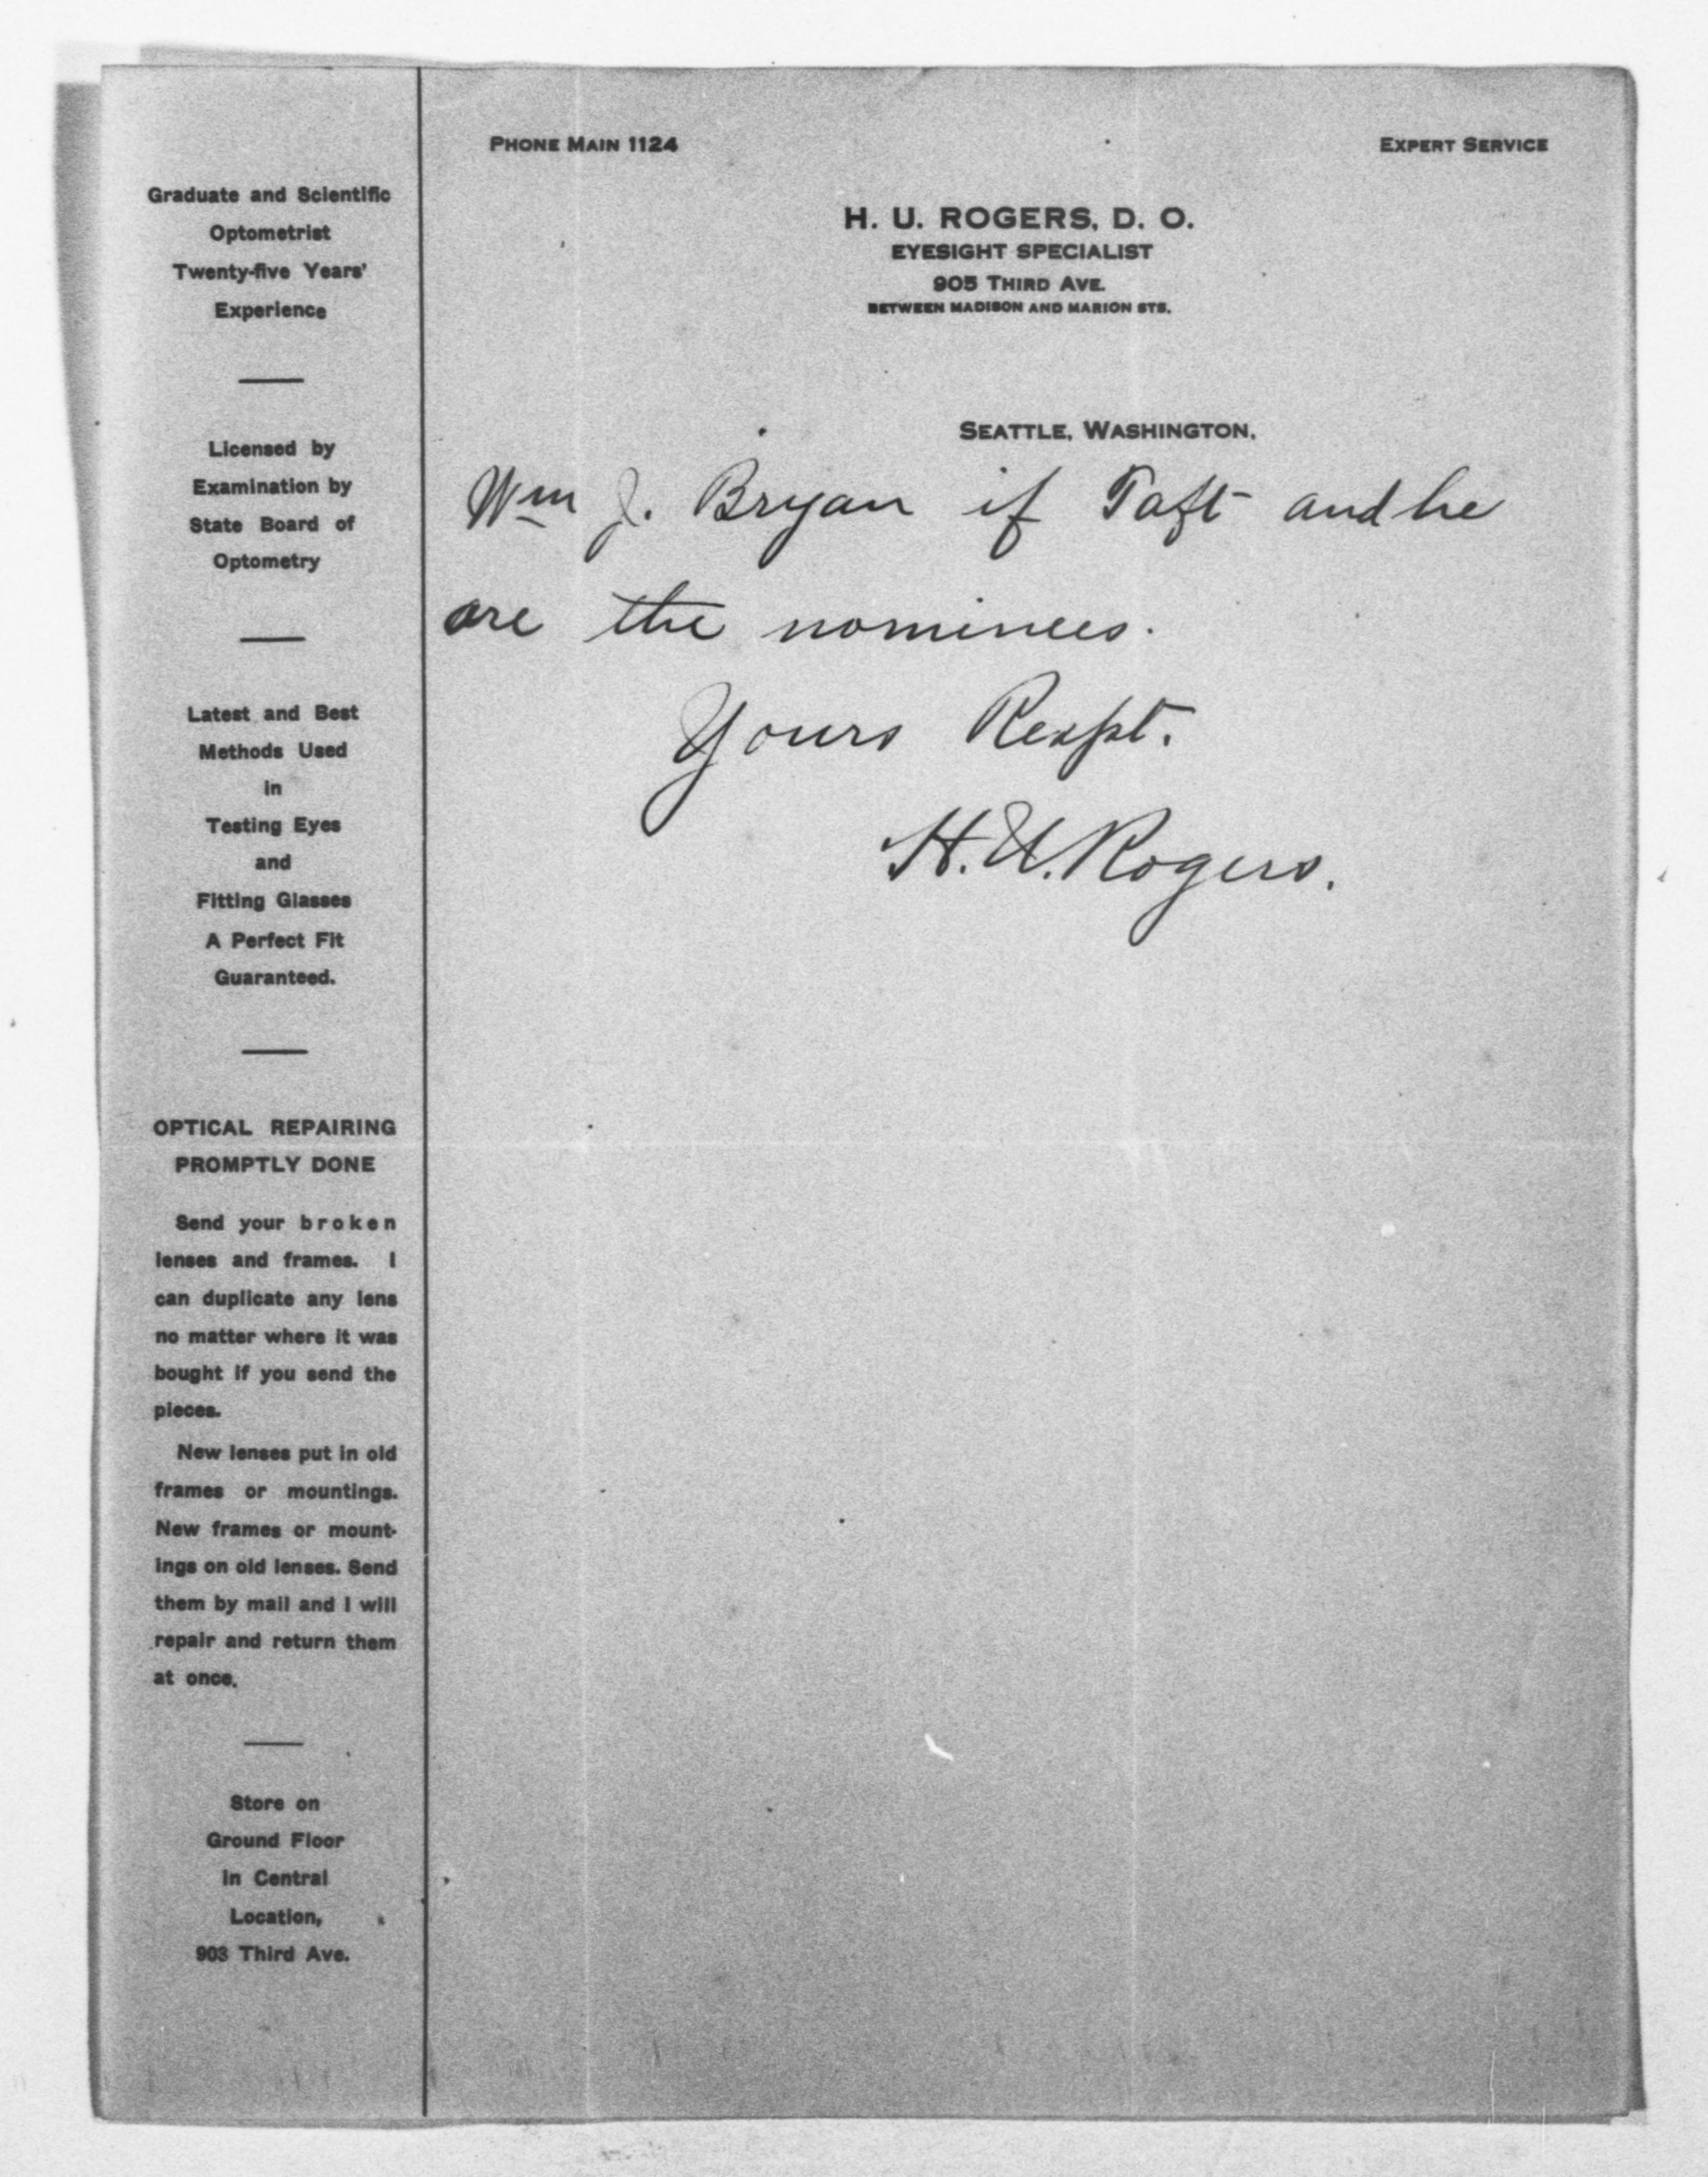 PHONE MAIN 1124
EXPERT SERVICE
H. U. ROGERS, D. O.
EYESIGHT SPECIALIST
905 THIRD AVE.
BETWEEN MADISON AND MARION STS.
SEATTLE, WASHINGTON,
Wm J. Bryan if Taft and he
are the nominees.
Yours Respt.
H. U. Rogers.
Graduate and Scientific
Optometrist
Twenty-five Years'
Experience
Licensed by
Examination by
State Board of
Optometry
Latest and Best
Methods Used
in
Testing Eyes
and
Fitting Glasses
A Perfect Fit
Guaranteed.
OPTICAL REPAIRING
PROMPTLY DONE
Send your broken
lenses and frames. I
can duplicate any lens
no matter where it was
bought if you send the
pieces.
New lenses put in old
frames or mountings.
New frames or mount-
ings on old lenses. Send
them by mail and I will
repair and return them
at once.
Store on
Ground Floor
in Central
Location,
903 Third Ave.